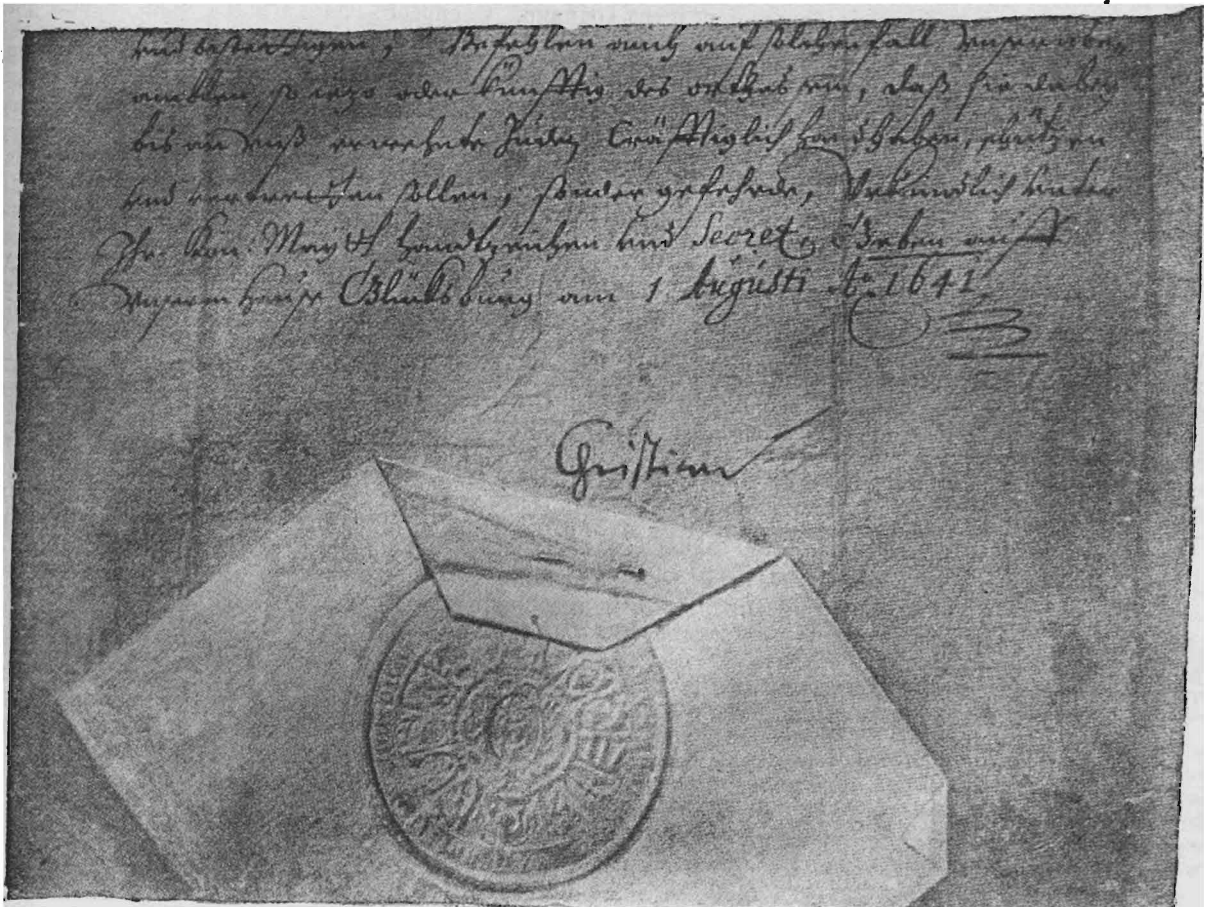 und bestettigen, Befehlen auch auf solchen fall unsern be-
ambten, so ietzo oder künfftig des orthes sein, daß sie dabey
bis an uns erwehnte Juden Cräfftiglich handthaben, schützen
und vertretten sollen, sonder gefehrde, Uhrkundlich unter
Ihr. Kön: Maytt handtzeichen und Secret, Geben auff
unserm hause Glücksburg am 1 Augusti Ao 1641
Christian